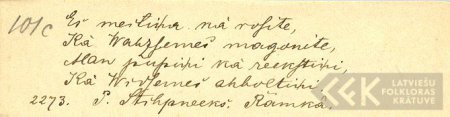 101c
Es meitiņa kā rosite,
Kā Wahzsemes magonite,
Man pupiņi kā reekstiņi,
Kā Widsemes ahboltiņi
2273. P. Stihpneeks. Rāmkā.
LATVIEŠU
FOLKLORAS
KRĀTUVE